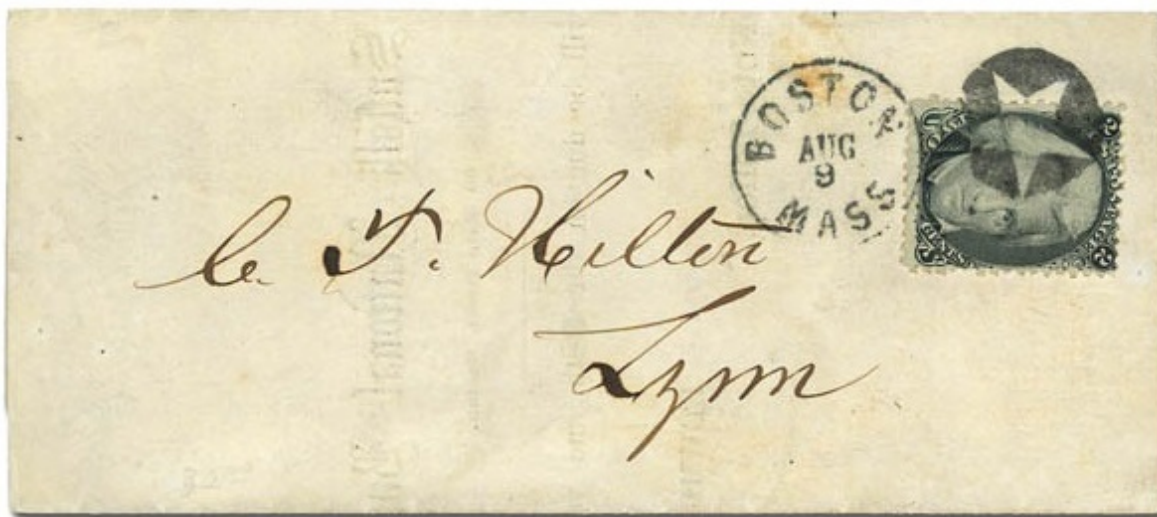 BOSTON
AUG
9
MASS
C. F. Hilton
Lynn